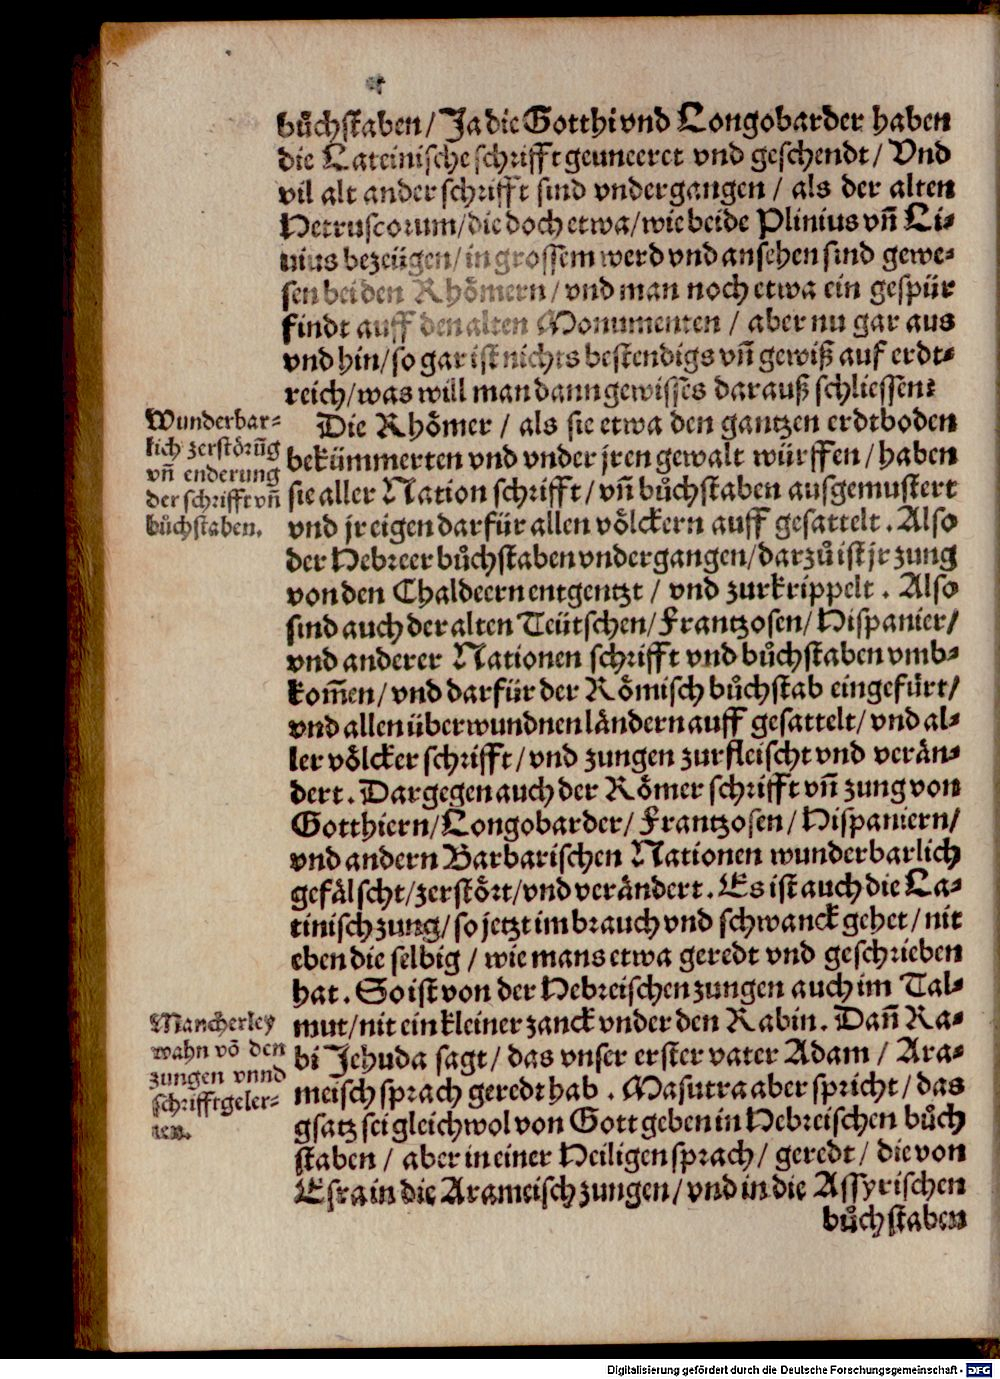 bůchstaben / Ja die Gotthi vnd Longobarder haben
die Lateinische schrifft geuneeret vnd geschendt / Vnd
vil alt ander schrifft sind vndergangen / als der alten
Hetruscorum / die doch etwa / wie beide Plinius vñ Li-
uius bezeügen / in grossem werd vnd ansehen sind gewe-
sen bei den Rhömern / vnd man noch etwa ein gespür
findt auff den alten Monumenten / aber nu gar aus
vnd hin / so gar ist nichts bestendigs vñ gewiß auf erdt-
reich / was will man dann gewisses darauß schliessen?
Wunderbar-
lich zerstörũg
vñ enderung
der schrifft vñ
bůchstaben.
Die Rhömer / als sie etwa den gantzen erdtboden
bekümmerten vnd vnder jren gewalt würffen / haben
sie aller Nation schrifft / vñ bůchstaben ausgemustert
vnd jr eigen darfür allen völckern auff gesattelt. Also
der Hebreer bůchstaben vndergangen / darzů ist jr zung
von den Chaldeern entgentzt / vnd zurkrippelt. Also
sind auch der alten Teütschen / Frantzosen / Hispanier /
vnd anderer Nationen schrifft vnd bůchstaben vmb-
kom̃en / vnd darfür der Römisch bůchstab eingefürt /
vnd allen überwundnen ländern auff gesattelt / vnd al-
ler völcker schrifft / vnd zungen zurfleischt vnd verän-
dert. Dargegen auch der Römer schrifft vñ zung von
Gotthiern / Longobarder / Frantzosen / Hispaniern /
vnd andern Barbarischen Nationen wunderbarlich
gefälscht / zerstört / vnd verändert. Es ist auch die La-
tinisch zung / so jetzt im brauch vnd schwanck gehet / nit
eben die selbig / wie mans etwa geredt vnd geschrieben
hat. So ist von der Hebreischen zungen auch im Tal-
mut / nit ein kleiner zanck vnder den Rabin. Dañ Ra-
bi Jehuda sagt / das vnser erster vater Adam / Ara-
meisch sprach geredt hab. Masutra aber spricht / das
gsatz sei gleichwol von Gott geben in Hebreischen bůch
staben / aber in einer Heiligen sprach / geredt / die von
Esra in die Arameisch zungen / vnd in die Assyrischen
Mancherley
wahn võ den
zungen vnnd
schrifftgeler-
ten.
bůchstaben
Digitalisierung gefördert durch die Deutsche Forschungsgemeinschaft - DFG